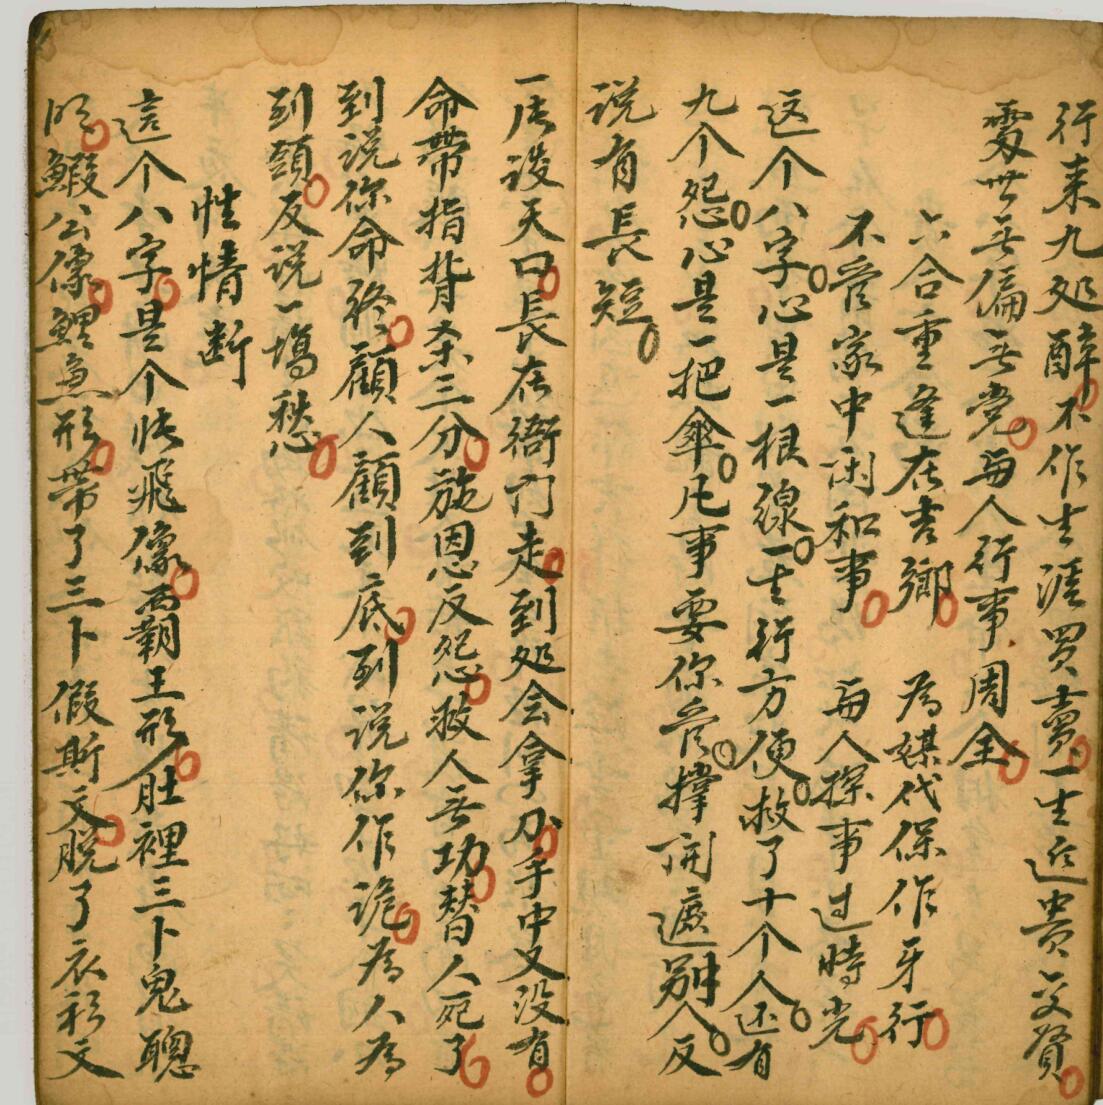 行来九処醉不作生涯買賣一生近貴交賢
處世無偏無党與人行事周全
六合重逢在吉鄉　為媒代保作牙行
不管家中閑和事　與人探事过時光
这个八字心是一根線一生行方便救了十个人还有
九个怨心是一把傘凡事要你管撑開遮别人反
说有長短
一店设天口長在衙门走到処会拿刀手中又没有
命帶指背杀三分旋恩反怨救人無功替人死了
到说你命终顧人顧到底到说你作诡為人為
到頭反说一塲愁
性情断
這个八字是个張飛像覇王形肚裡三卜鬼聰
明鰕公像鯉魚形帶了三卜假斯文脫了衣衫文